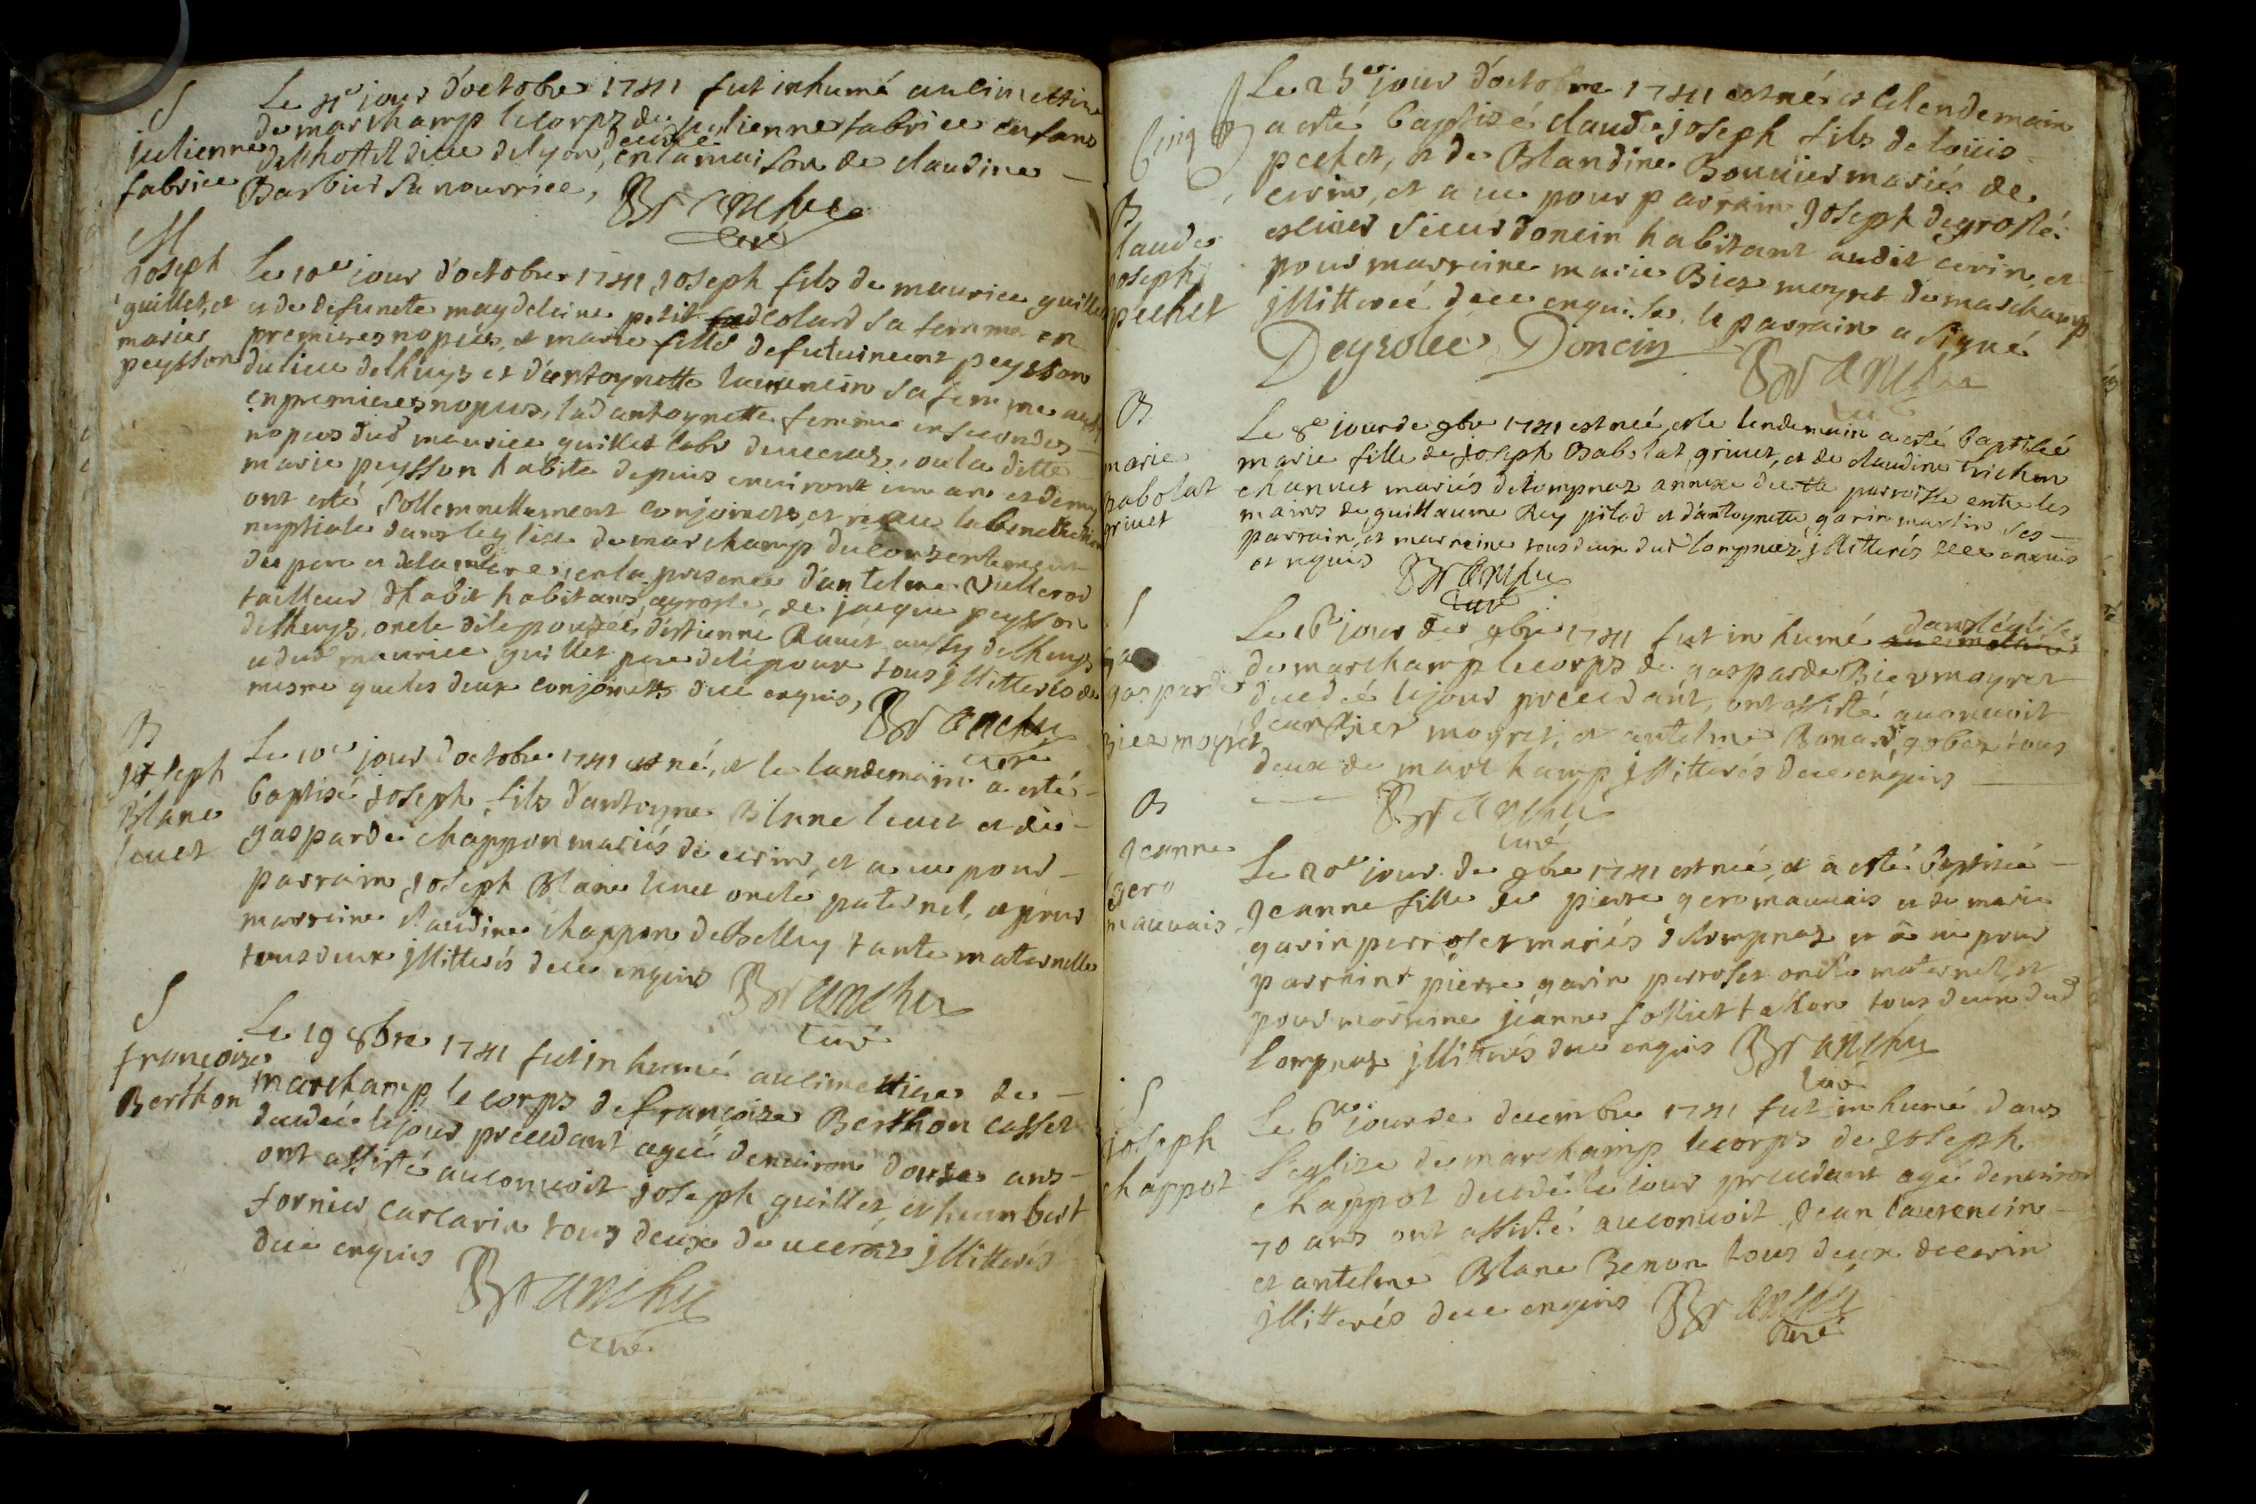 S
julienne
fabrice
Le 4e jour d'octobre 1741 fut inhumé au cimettire
de marchamp le corps de julienne fabrice enfans
de l'hottel dieu de lyon decedé en la maison de claudine
Barbier sa nourrice, Branche
curé
M
joseph
guillet, et
marie
peysson
Le 10e jour d'octobre 1741 joseph fils de maurice guillet
et de defuncte magdeleine petit colard sa femme en
premieres nopces, et marie fille de feu peysson
du lieu de lhuys et d'antoynette laurencin sa femme aussy
en premieres nopces, lad antoynette femme en secondes
nopces dud maurice guillet labr de vceraz, ou la ditte
marie peysson habite depuis environt un an et demy
ont esté sollemnellement conjoincts, et reçeu la benediction
nuptiale dans leglise de marchamp du consentement
du pere et de la mere, en la presence d'antelme vullerod
tailleur d'habit habitans a groslé, de jacque peysson
de lhuys, oncle de lepouzée, d'estienne Ravet aussy de lhuys
et dud maurice guillet pere de l'époux tous jllitterés de
mesme que les deux conjoincts duë enquis, Branche
curé
B
joseph
Blanc
levet
Le 10e jour d'octobre 1741 est né, et le landemain a esté
baptisé joseph fils d'antoyne Blanc levet et de
gasparde chappon mariés de cerin, et a eu pour
parrain joseph Blanc levet oncle paternel, et pour
marreine claudine chappon de Belley tante maternelle
tous deux jllitterés duë enquis Branche
curé
S
françoize
Berthon
Le 19 8bre 1741 fut inhumé au cimettire de
marchamp le corps de françoize Berthon casset
decedée le jour precedant agée d'environ douze ans
ont assisté au convoit joseph guillet, et humbert
fornier carcarin tous deux de vceraz jllitterés
duë enquis Branche
curé
B
claude
joseph
pechet
Le 25e jour d'octobre 1741 est né et le lendemain
a esté baptizé claude joseph fils de loüis
pechet, et de Blandine Bouvier mariés de
cerin, et a eu pour parrain joseph degroslé
escuier sieur doncin habitant audit cerin, et
pour marreine marie Biez moyret de marchamp
jllitterée duë enquise, le parrain a signé
Degrolee Doncin Branche
curé
B
marie
Babolat
grivet
Le 8e jour de 9bre 1741 est née, et le lendemain a esté baptisée
marie fille de joseph Babolat grivet, et de claudine trichon
chanvet mariés de lompnaz annexe de cette parroisse ente les
mains de guillaume Rey pilod et d'antoynette garin martin ses
parrain, et marreine tous deux dud lompnaz jllitterés duë enquis
et requis Branche
curé
S
gasparde
Biez moyret
Le 16e jour de 9bre 1741 fut inhumé dans l'église
de marchamp le corps de gasparde Biez moyret
decedée le jour precedant, ont assisté au convoit
jean Biez moyret, et antelme Bonard gobez tous
deux de marchamp jllitterés duë enquis
Branche
curé
B
jeanne
gero
mauvais
Le 20e jour de 9bre 1741 est née, et a esté baptizée
jeanne fille de pierre gero mauvais et de marie
garin perroset mariés de lompnaz et a eu pour
parrain pierre garin perroset oncle maternel, et
pour marreine jeanne folliet tallon tous deux dud
lompnaz jllitterés duë enquis Branche
curé
S
joseph
chappot
Le 6e jour de decembre 1741 fut inhumé dans
l'eglize de marchamp le corps de joseph
chappot decedé le jour precedant agé d'environ
70 ans ont assisté au convoit jean laurencin
et antelme Blanc Benon tous deux de cerin
jllitterés duë enquis Branche
curé